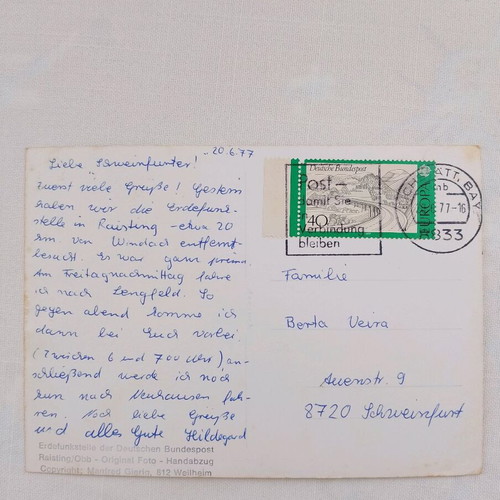 -20.6.77
Liebe Schweinfurter!
Zuerst viele Grüße! Gestern
haben wir die Erdefunk-
stelle in Raisting - etwa 20
km von Windach entfernt -
besucht. Es war ganz prima.
Am Freitagnachmittag fahre
ich nach Lengfeld. So
gegen abend komme ich
dann bei Euch vorbei.
(Zwischen 6 und 7 00 Uhr) an-
schließend werde ich noch
nach Neuhausen fah-
ren. Noch liebe Grüße
und alles Gute Hildegard
Erdefunkstelle der Deutschen Bundespost
Raisting/Obb - Original Foto - Handabzug
Copyright: Manfred 812 Weilheim
Deutsche Bundespost
40
EUROPA
Post -
damit Sie
in Verbindung
bleiben
ATT, BAY
mb
77-16
Familie
Berta Veira
Auenstr. 9
8720 Schweinfurt